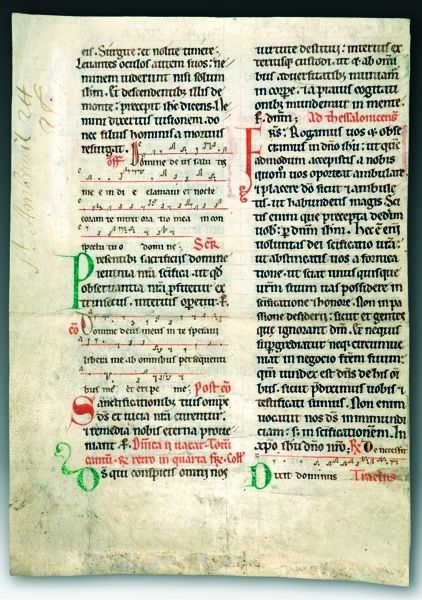 eis. Surgite: et nolite timere.
Levantes oculos autem suos: ne
minem viderunt nisi solum
ihm. Et descendentibus illis de
monte: precepit ihc dicens. Ne
mini dixeritis visionem. do
nec filius hominis a mortuis
resurgat. off Domine deus salu tis
me e in di e clamavi et nocte
coram te intret ora tio mea in con
spectu tu o domi ne. Secr̄
Presentibꝫ sacrificiis domine
ieiunia nrā scifica. ut qđ
observantia nrā profitetur ex
trinsecus. interius operetur. ꝑ.
co Domine deus meus in te speravi
libera me ab omnibus persequenti
bus me et eripe me. Post cō
Sanctificationibꝫ tuis omps
ds et vicia nrā curentur.
et remedia nobis eterna prove
niant. ꝑ. Dn̄ica ii vacat.
in quarta fr̄. Coll
Ds qui conspicis omni nos
virtute destitui: interius ex
teriusqꝫ custodi. ut et ab omi
bus adversitatibꝫ muniamr̄
in corpe. et a pravis cogitati
onibꝫ mundemur in mente.
ꝑ. dnm̄. Ad thessalonicens̄
Frs̄. Rogamus vos et obse
cramus in dn̄o ihu. ut que
admodum accepistis a nobis
quom̄ vos oporteat ambulare
et placere dō sicut et ambula
tis. ut habundetis magis. Sci
tis enim que precepta dederim
vob. ꝑ dnm̄ ihm. Hec ē enī
voluntas dei scificatio vrā.
ut abstineatis vos a fornica
tione. ut sciat unusquisqꝫ
vrm̄ suum vas possidere in
scificatione et honore. Non in pas
sione desiderii: sicut et gentes
que ignorant dm̄. Et nequis
supgrediatur neqꝫ circumve
niat in negocio frēm suum:
qm̄ vindex est dns̄ de his oi
bus. sicut p̄diximus vobis et
testificati sumus. Non enim
vocavit nos ds in inmundi
ciam: sꝫ in scificationem. In
xpo ihu dn̄o nr̄o. R̄ De necessit
Dixit dominus Tractus